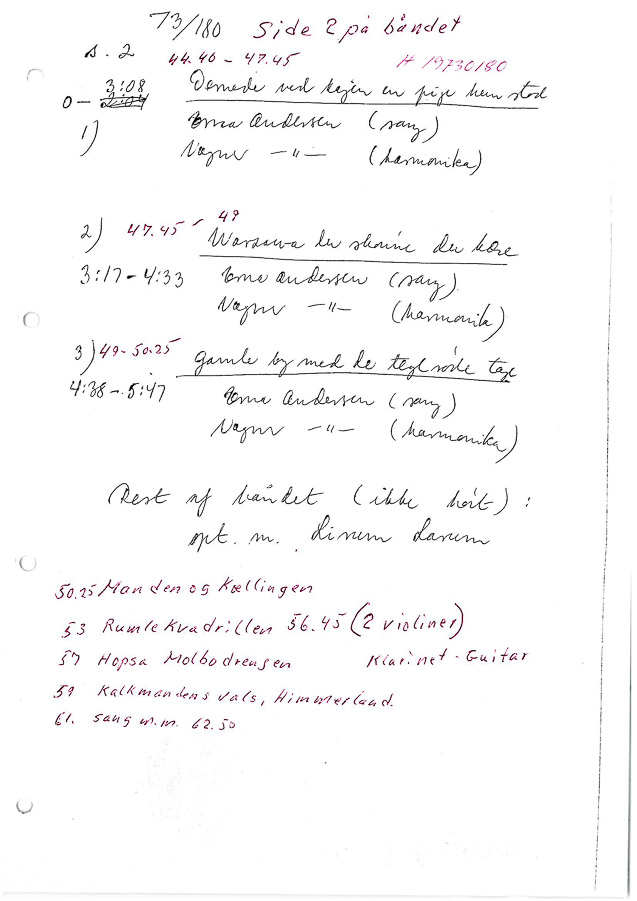 73/180 Side 2 på båndet
s. 2 44.40 - 47.45 H 19730180
0 - 3:08 Dernede ved kajen en pige hun stod
1) Erna Andersen (sang)
Vagner -"- (harmonika)
2) 47.45 - 49
Warzawa du skønne du kære
3:17 - 4:33 Erna Andersen (sang)
Vagner -"- (harmonika)
3) 49-50.25 Gamle by med de teglrøde tage
4:38 - 5:47 Erna Andersen (sang)
Vagner -"- (harmonika)
Rest af båndet (ikke hørt) :
opt. m. Lirum Larum
50.25 Manden og Kællingen
53 Rumlekvadrillen 56.45 (2 violiner)
57 Hopsa Molbodrensen Klarinet - Guitar
59 Kalkmandens vals, Himmerland.
61. sang m.m. 62.50